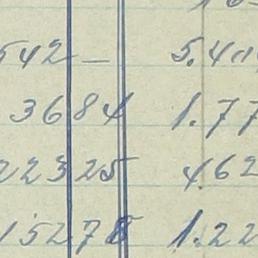 542 —
3684 1.77
22325 4.62
15278 1.22